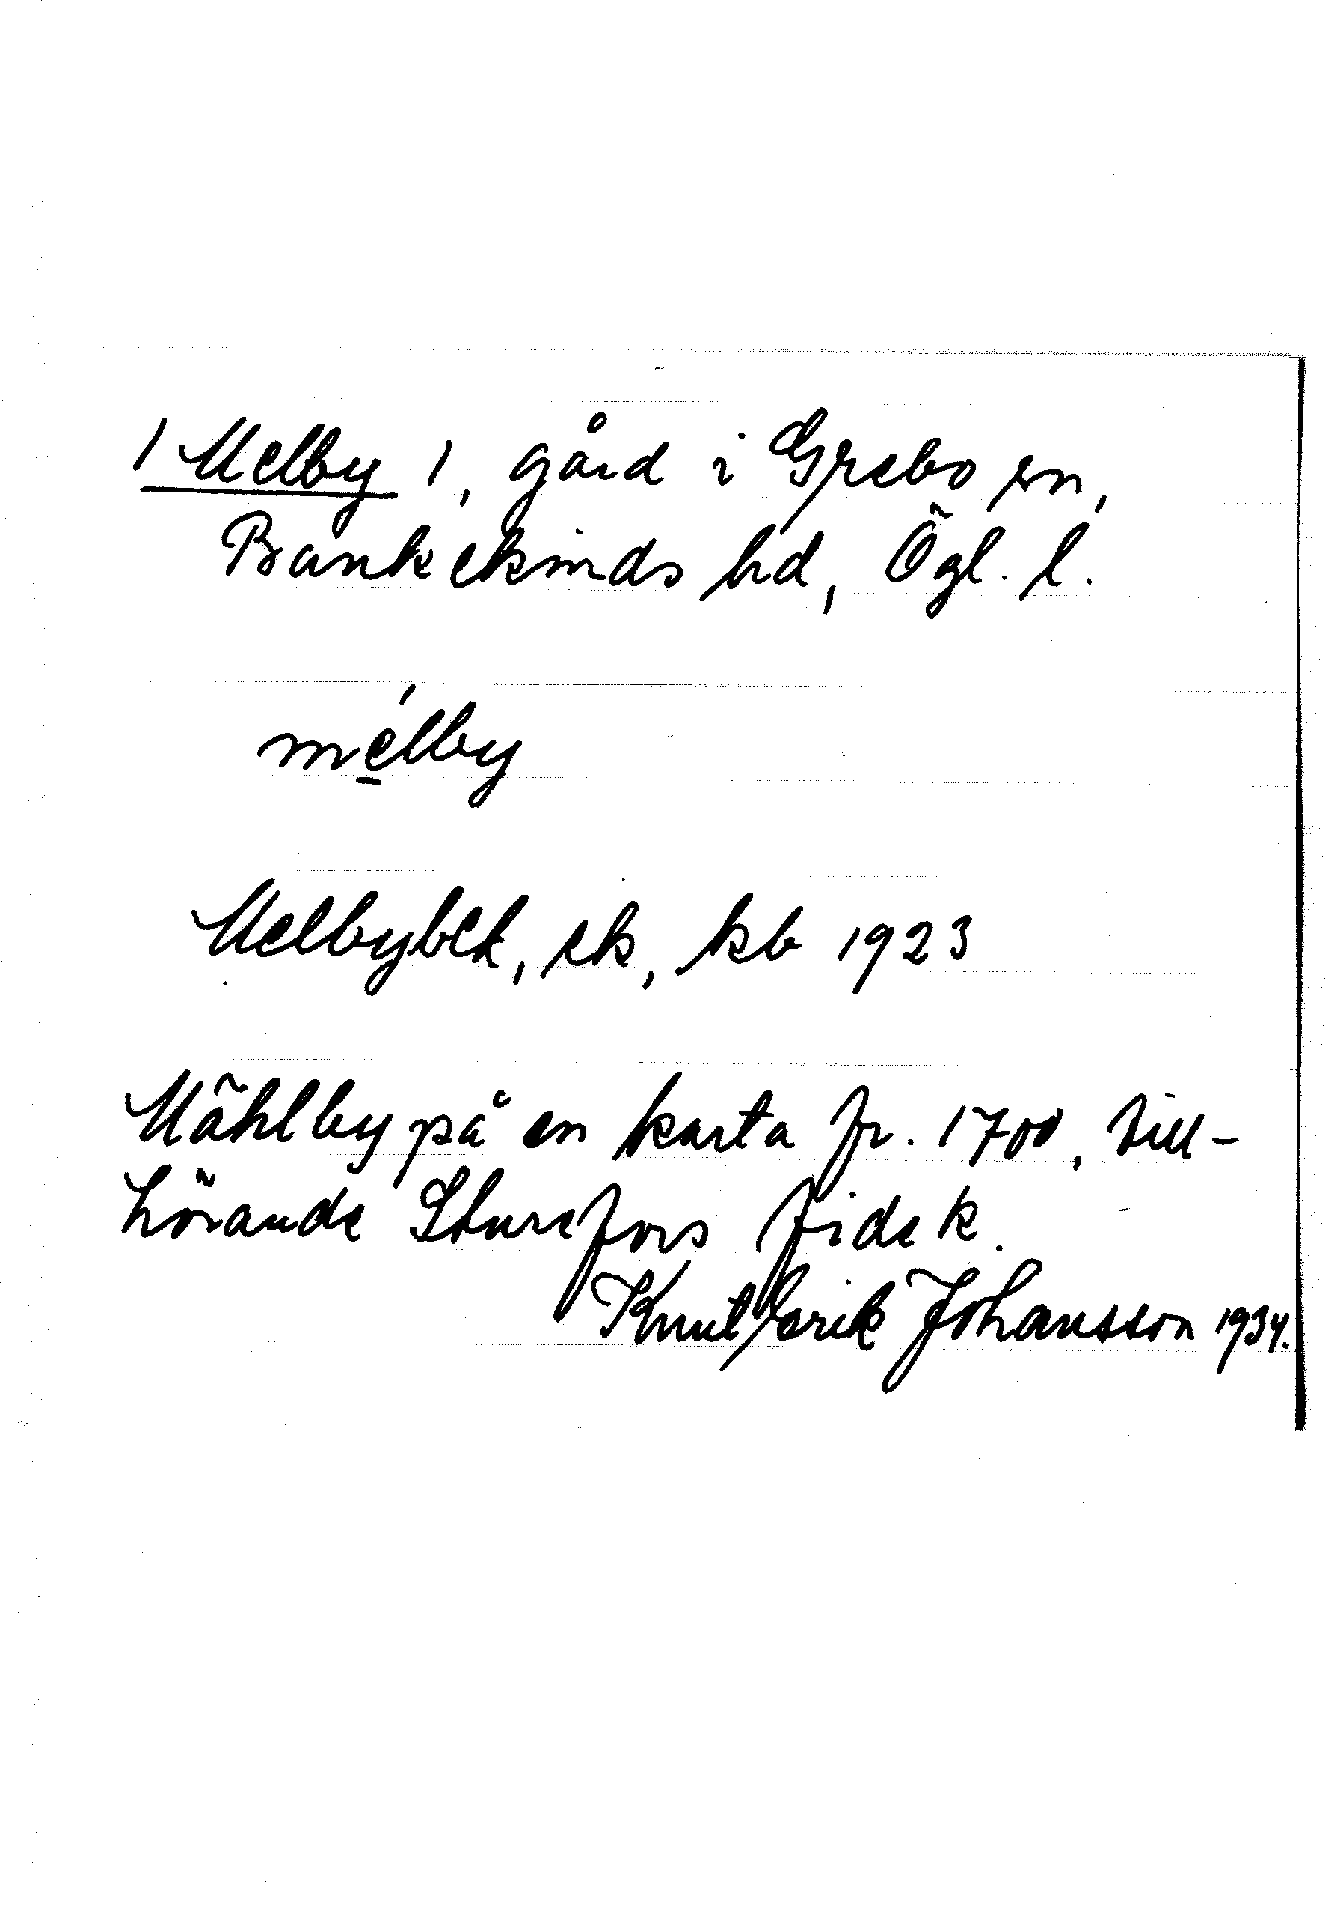 / Melby /, gård i Grebo sn,
Bankekinds hd, Ögl. l.
mélby
Melbybek, ek, kb 1923
Mählby på en karta fr. 1700, till-
hörande Sturefors fidek.
Knut Erik Johansson 1934.